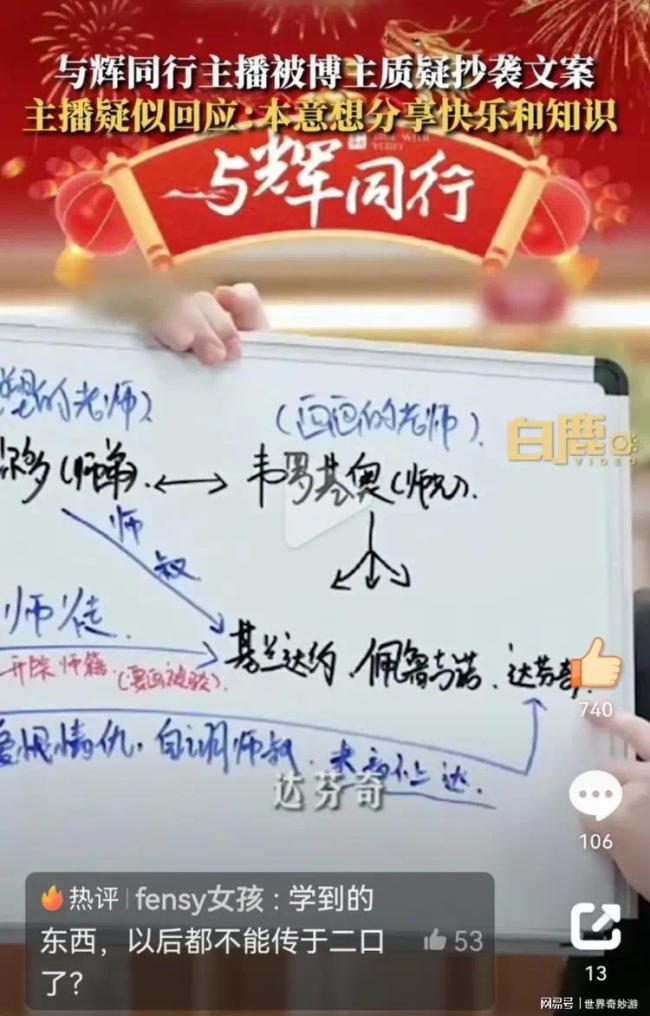 与辉同行主播被博主质疑抄袭文案
主播疑似回应:本意想分享快乐和知识
与辉同行
的老师)
(画画的老师).
白鹿
VIDEO
多(师弟).
韦罗基奥(师兄).
师叔
师徒.
开除师籍.(要画被毁).
基兰达约.佩鲁吉诺.达芬奇.
爱恨情仇.自谓师叔.
达芬奇
740
106
热评 fensy女孩:学到的
东西,以后都不能传于二口
了?
53
13
网易号 世界奇妙游